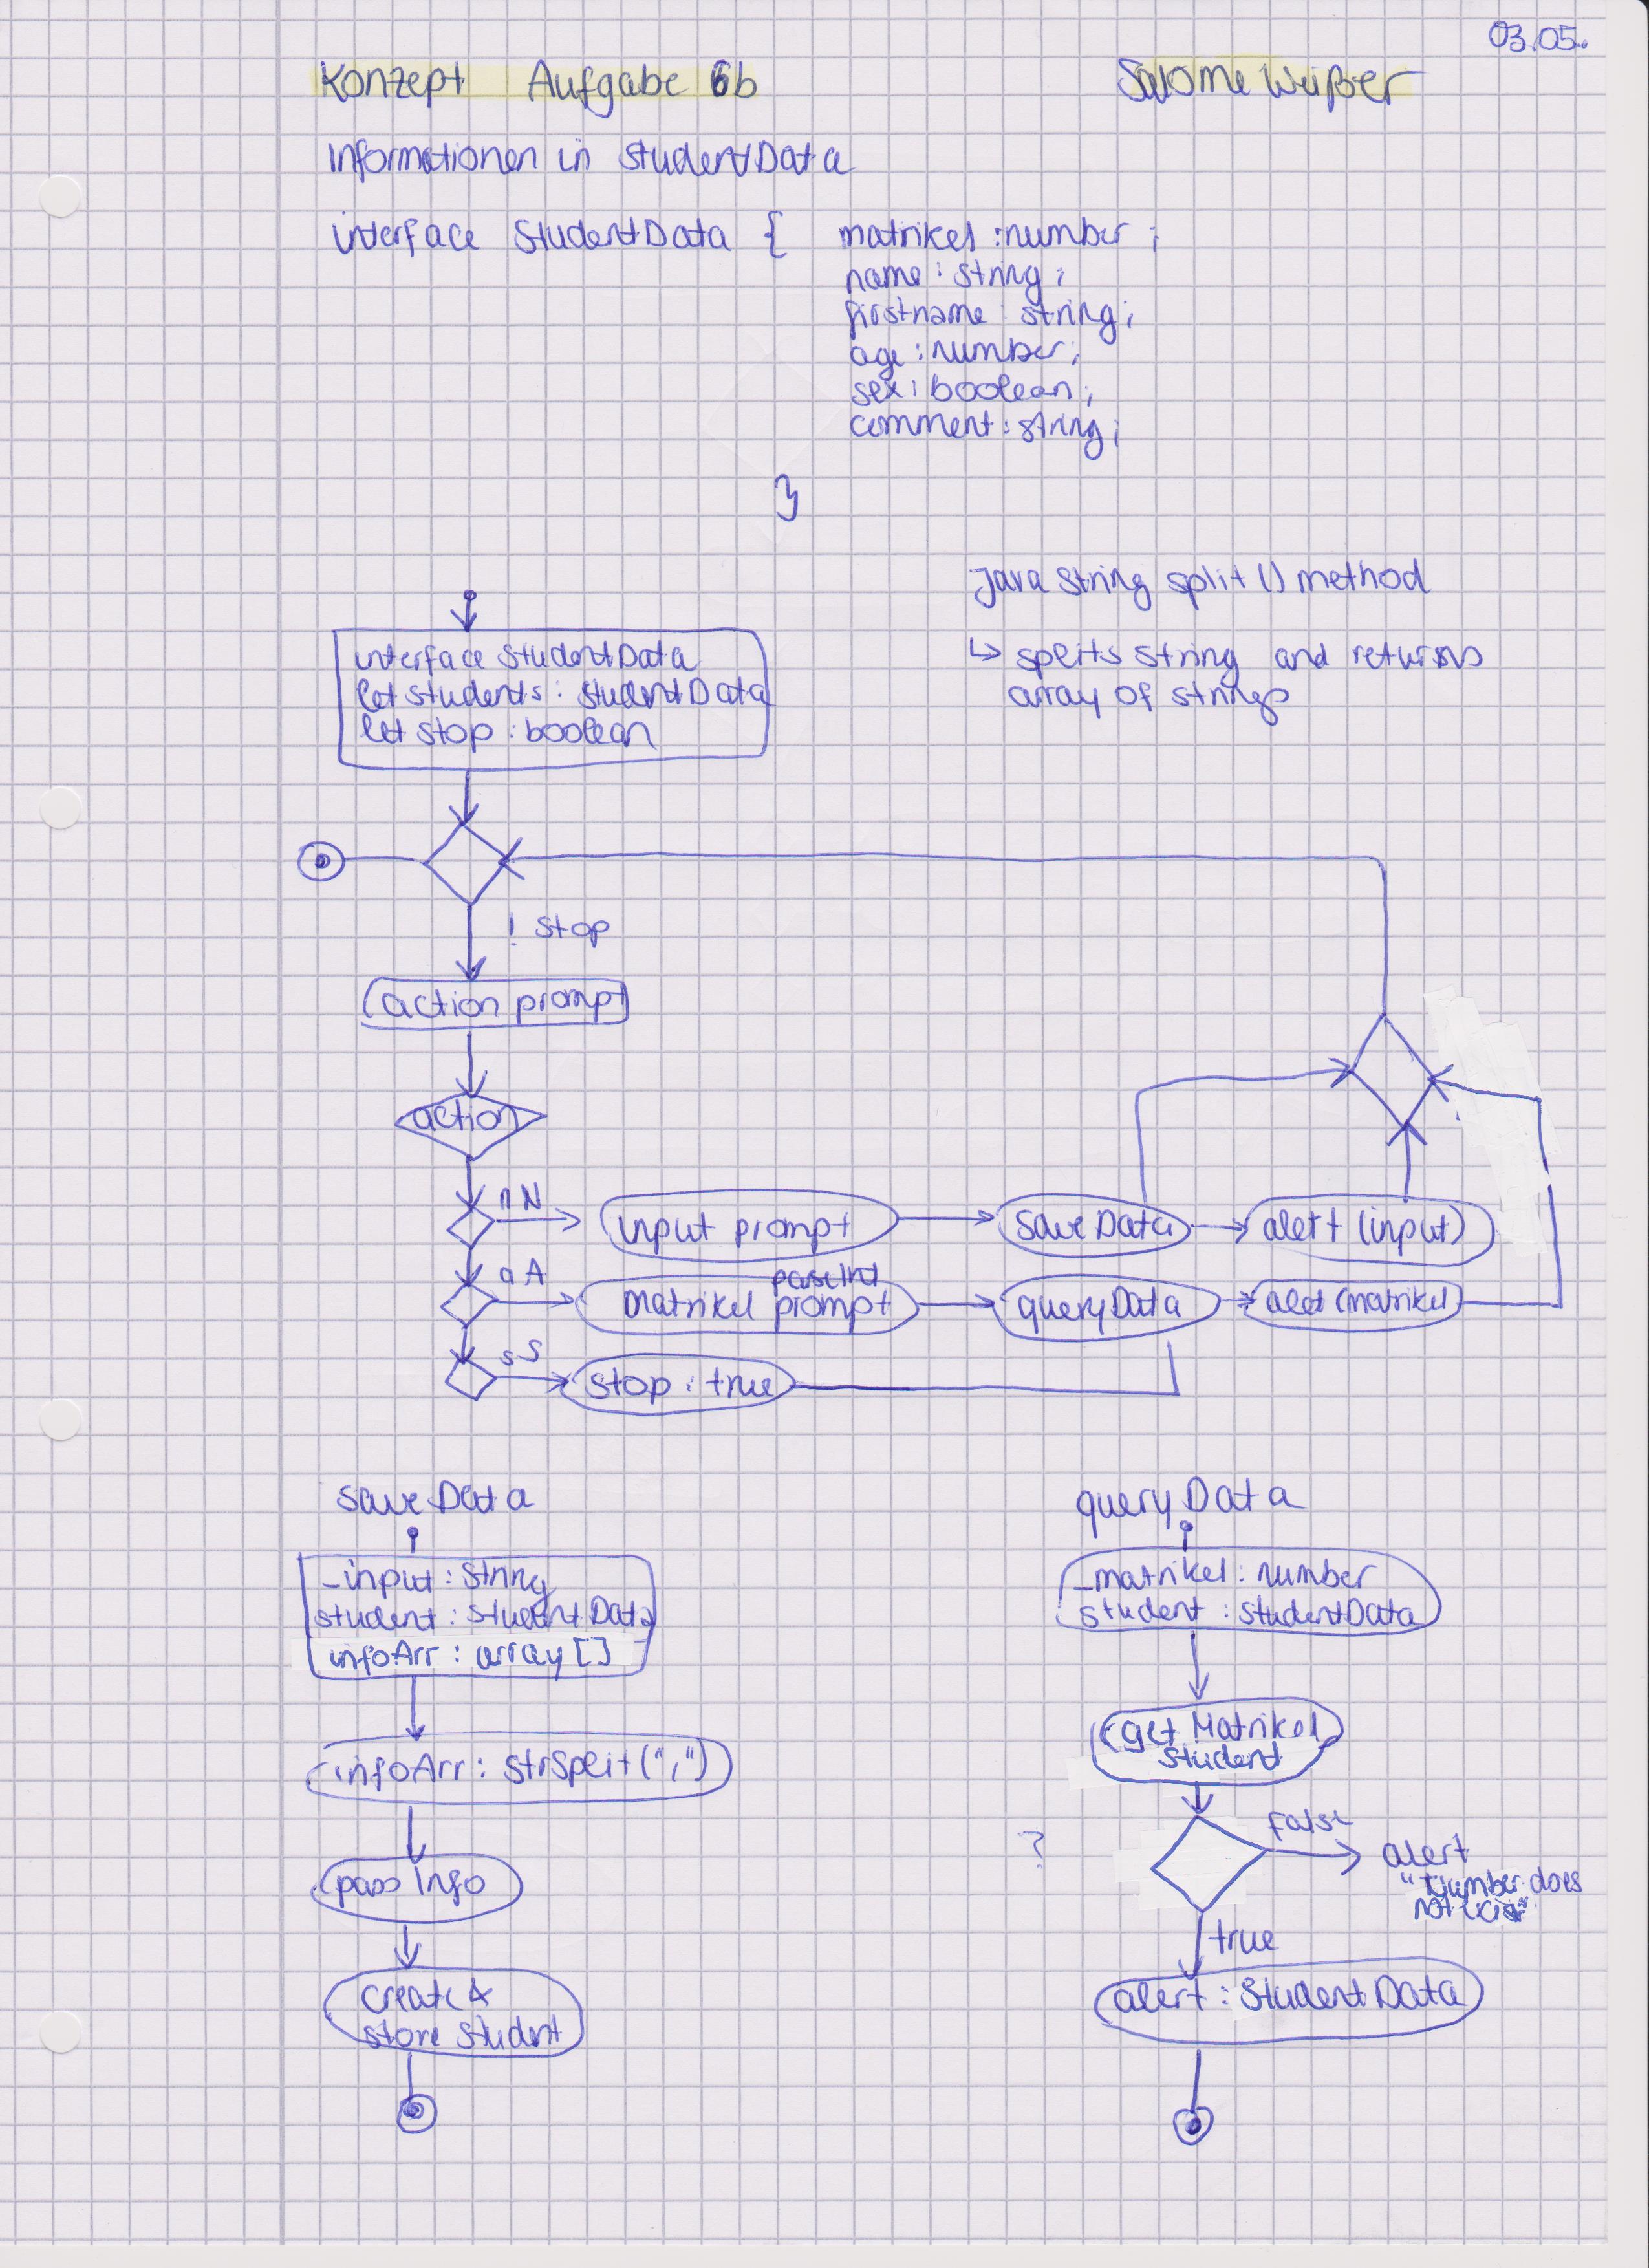 03.05.
Konzept Aufgabe 6b
Salome Weißer
Informationen in StudentData
interface StudentData { matrikel : number ;
name : string ;
firstname : string ;
age : number ;
sex : boolean ;
comment : string ;
}
Java String split () method
↳ splits string and returns
array of strings
interface StudentData
let students : StudentData
let stop : boolean
! stop
action prompt
action
n N
input prompt
save Data
alert (input)
a A
parseInt
matrikel prompt
queryData
alert (matrikel)
s S
stop : true
save Data
_input : string
student : StudentData
infoArr : array [ ]
infoArr : strSplit (",")
pass Info
create &
store student
query Data
_matrikel : number
student : StudentData
get Matrikel
student
?
false
alert
" number does
not exist"
true
alert : StudentData